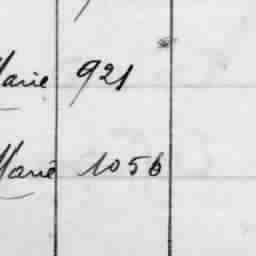 Marie 921
Marie 1056